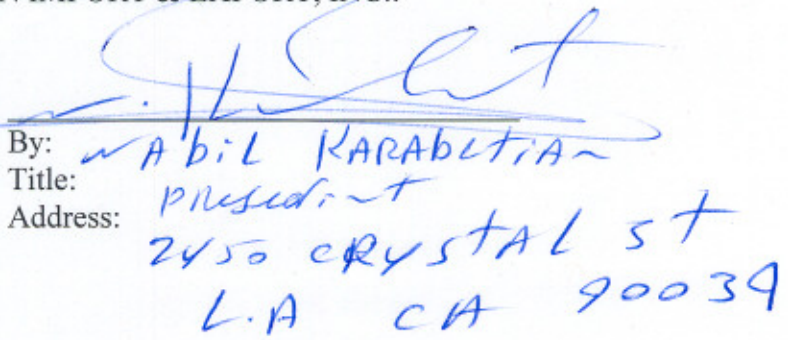 IMPORT & EXPORT, INC.
By: NAbiL KARAbEtiAN
Title: President
Address: 2450 CRYStAL St
L.A CA 90039